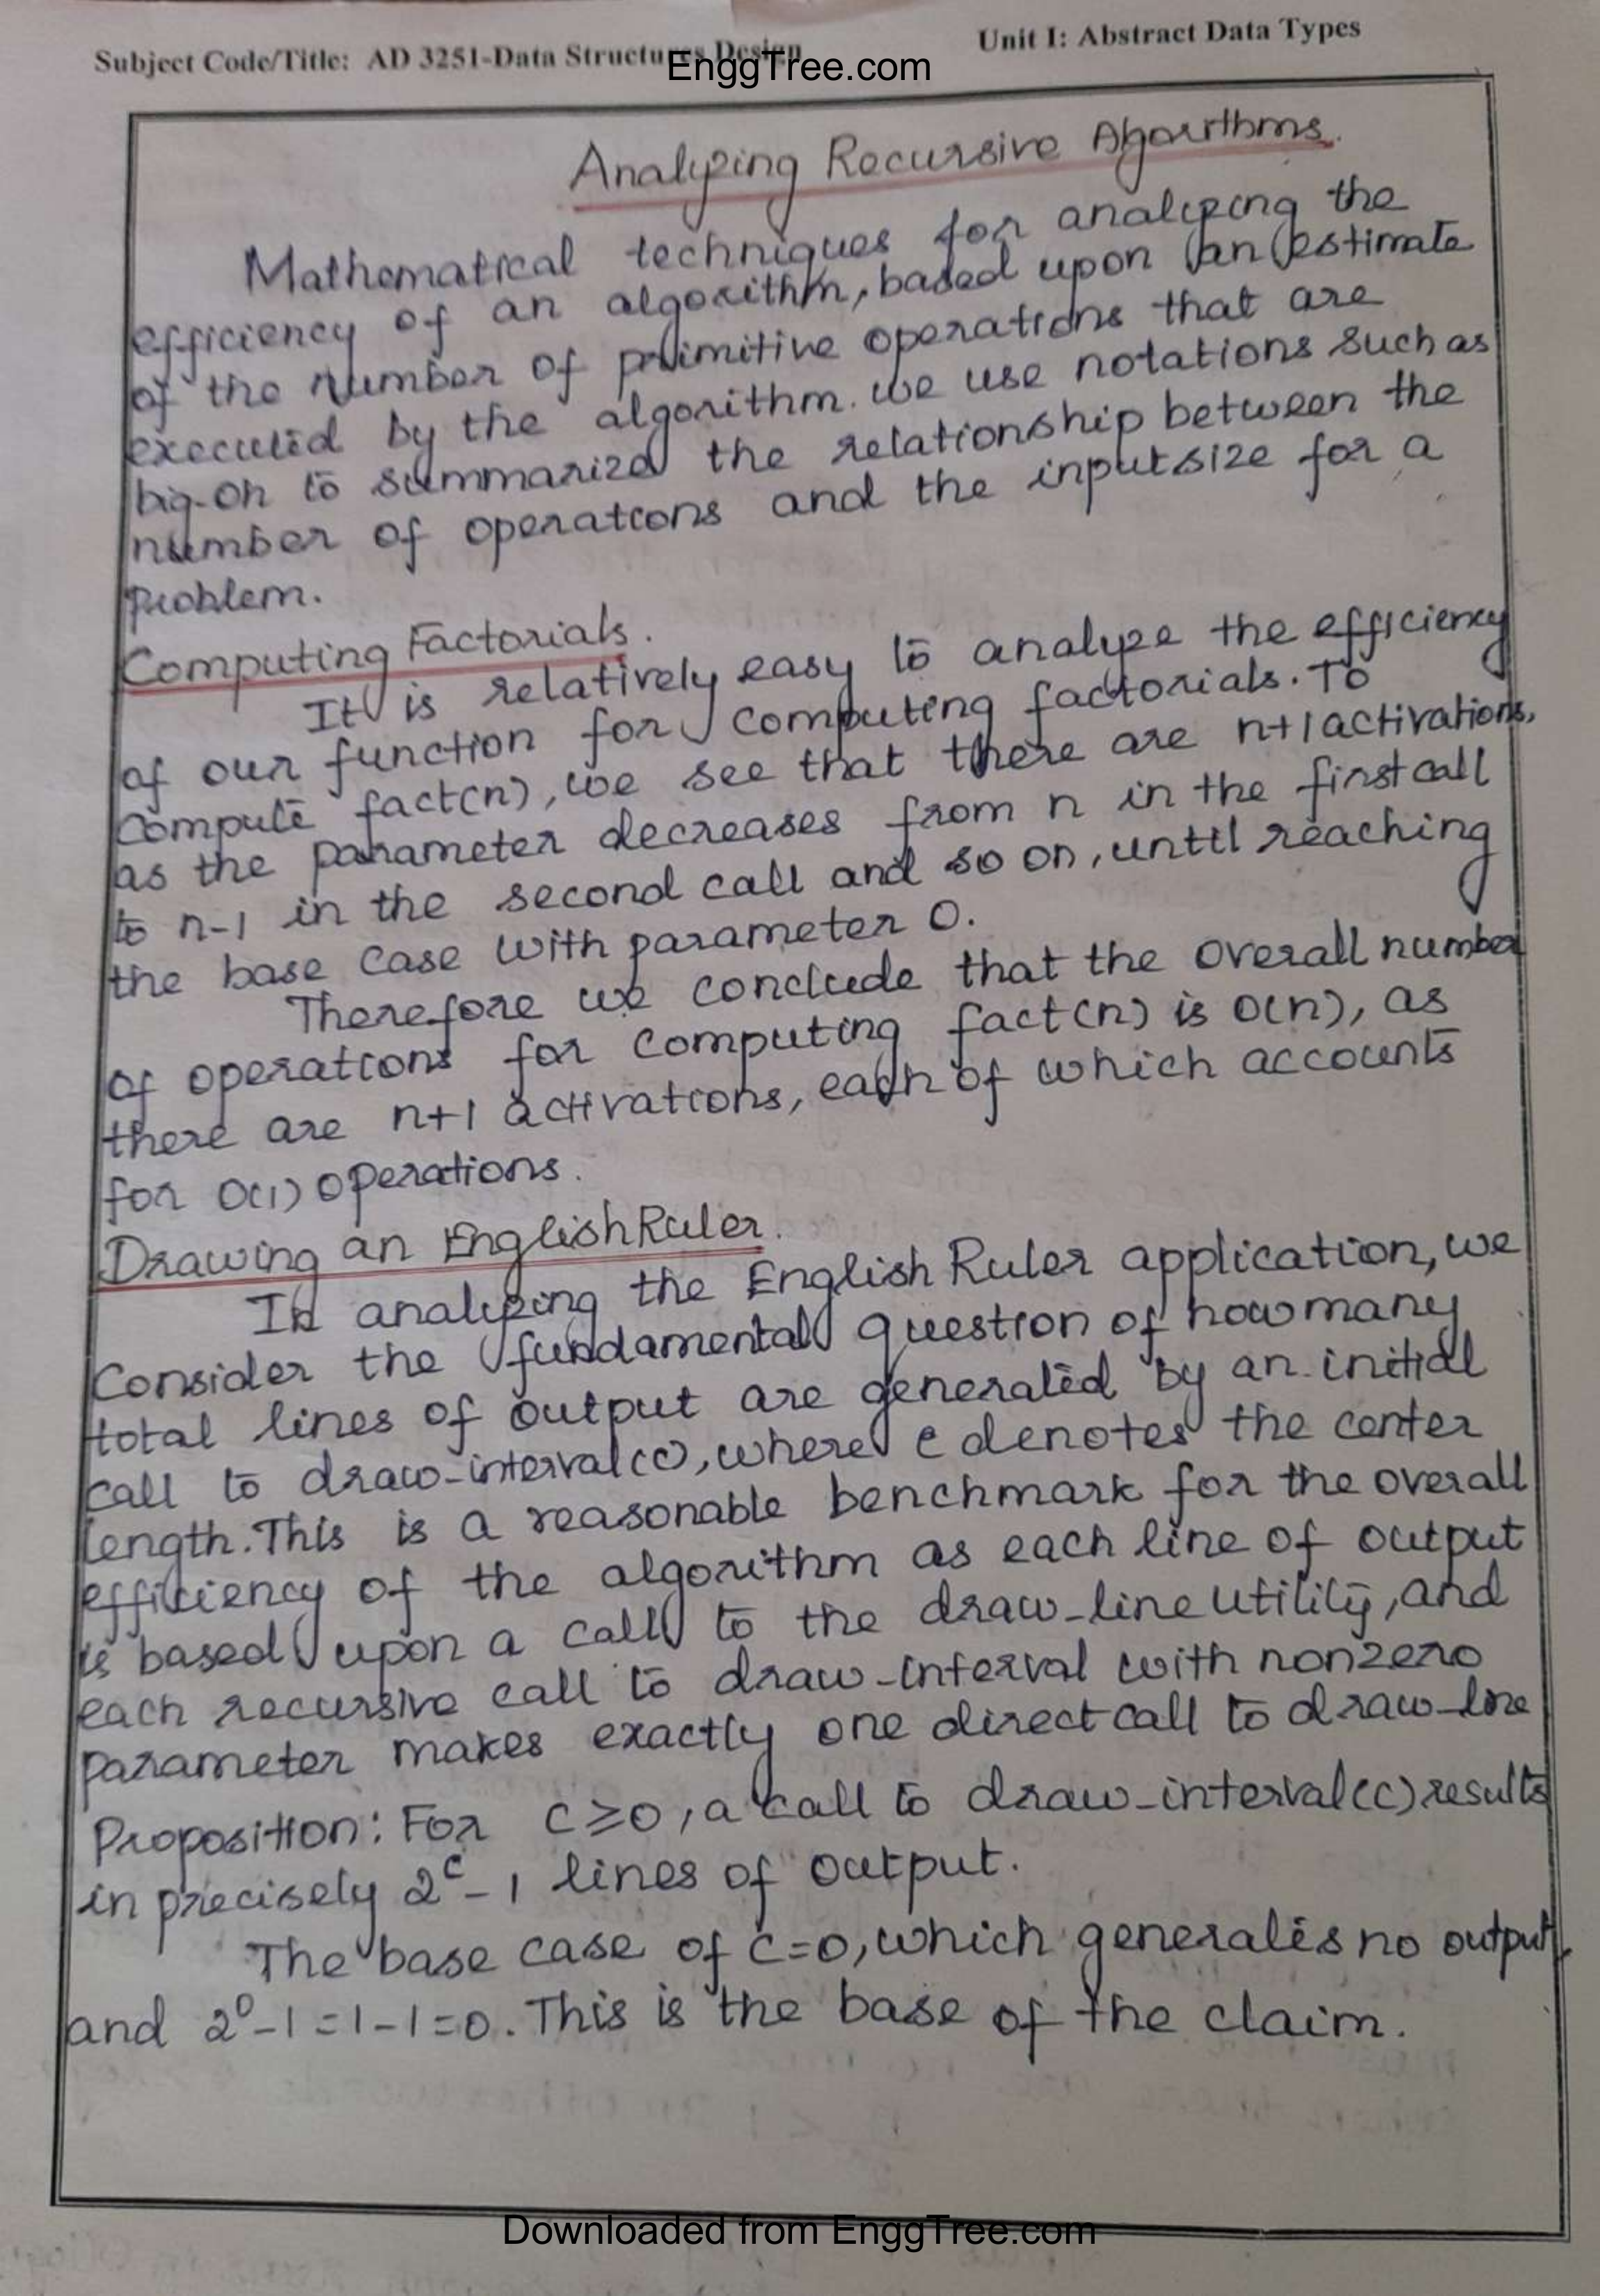 Subject Code/Title: AD 3251-Data Structures Design
Unit I: Abstract Data Types
EnggTree.com
Analyzing Recursive Algorithms.
Mathematical techniques for analyzing the
efficiency of an algorithm, based upon an estimate
of the number of primitive operations that are
executed by the algorithm. we use notations such as
big-oh to summarized the relationship between the
number of operations and the input size for a
problem.
Computing Factorials.
It is relatively easy to analyze the efficiency
of our function for computing factorials. To
compute fact(n), we see that there are n+1 activations,
as the parameter decreases from n in the first call
to n-1 in the second call and so on, until reaching
the base case with parameter 0.
Therefore we conclude that the overall number
of operations for computing fact(n) is O(n), as
there are n+1 activations, each of which accounts
for O(1) operations.
Drawing an English Ruler.
In analyzing the English Ruler application, we
Consider the fundamental question of how many
total lines of output are generated by an initial
call to draw-interval(c), where c denotes the center
length. This is a reasonable benchmark for the overall
efficiency of the algorithm as each line of output
is based upon a call to the draw-line utility, and
each recursive call to draw-interval with nonzero
parameter makes exactly one direct call to draw-line
Proposition: For C≥0, a call to draw-interval(c) results
in precisely 2^c-1 lines of output.
The base case of C=0, which generates no output,
and 2^0-1=1-1=0. This is the base of the claim.
Downloaded from EnggTree.com